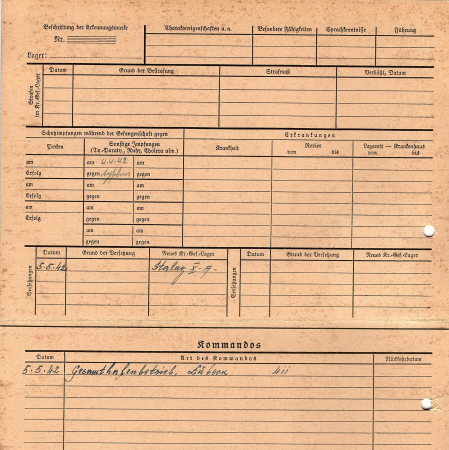 Beschriftung der Erkennungsmarke
Nr.
Lager:
Charaktereigenschaften u.a.
Besondere Fähigkeiten
Sprachkenntnisse
Führung
Strafen im Kr.-Gef.-Lager
Datum
Grund der Bestrafung
Strafmaß
Verbüßt, Datum
Schutzimpfungen während der Gefangenschaft gegen
Erkrankungen
Pocken
Sonstige Impfungen
(Ty.-Paraty., Ruhr, Cholera usw.)
Krankheit
Revier
von bis
Lazarett — Krankenhaus
von bis
am am 4.4.42 am
Erfolg gegen typhus gegen
am am am
Erfolg gegen gegen
am am am
Erfolg gegen gegen
am am
gegen gegen
Versetzungen
Datum
Grund der Versetzung
Neues Kr.-Gef.-Lager
Versetzungen
Datum
Grund der Versetzung
Neues Kr.-Gef.-Lager
5.5.42 Stalag X-A.
Kommandos
Datum
Art des Kommandos
Rückkehrdatum
5.5.42 Gesamthafenbetrieb, Lübeck